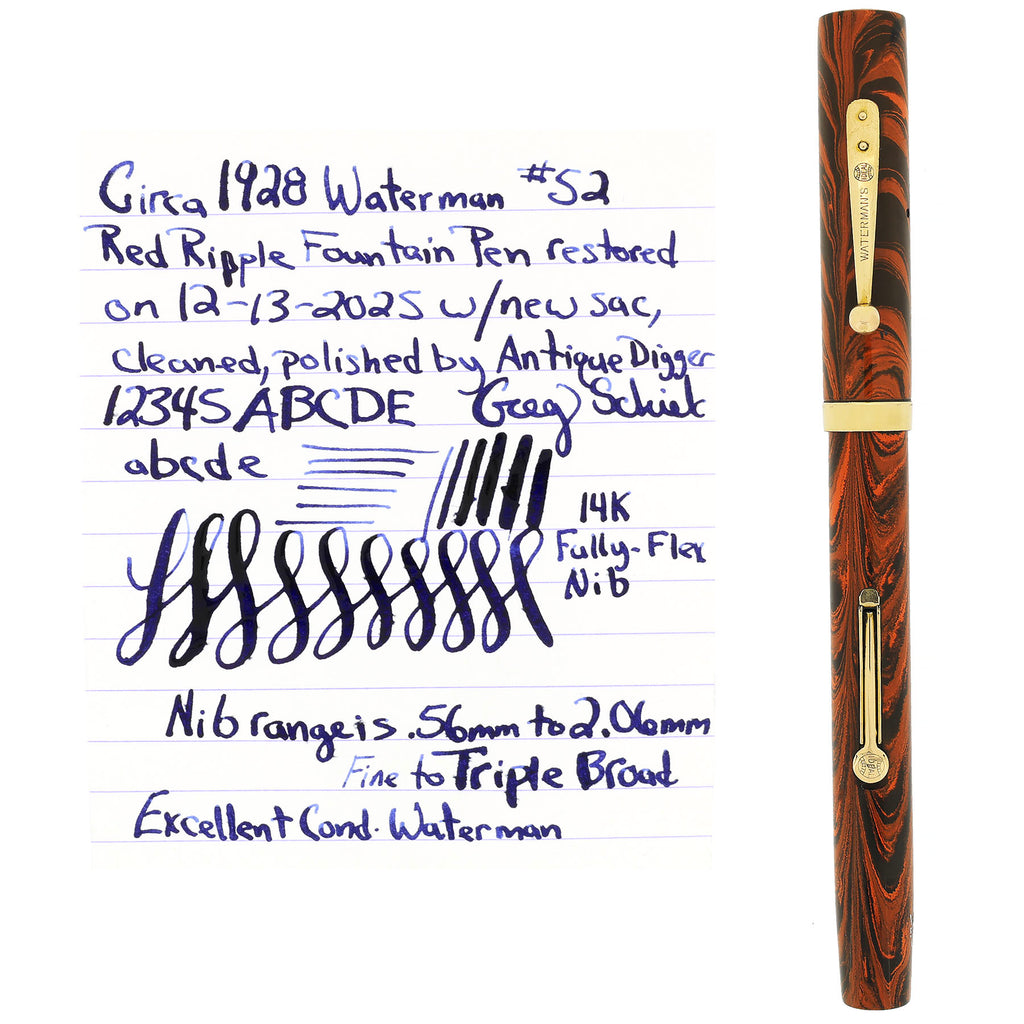 Circa 1928 Waterman #52
Red Ripple Fountain Pen restored
on 12-13-2025 w/new sac,
cleaned, polished by Antique Digger
12345 ABCDE Greg
abcde
14K
Fully-Flex
Nib
Nib range is .56mm to 2.06mm
Fine to Triple Broad
Excellent Cond. Waterman
WATERMAN'S
IDEAL